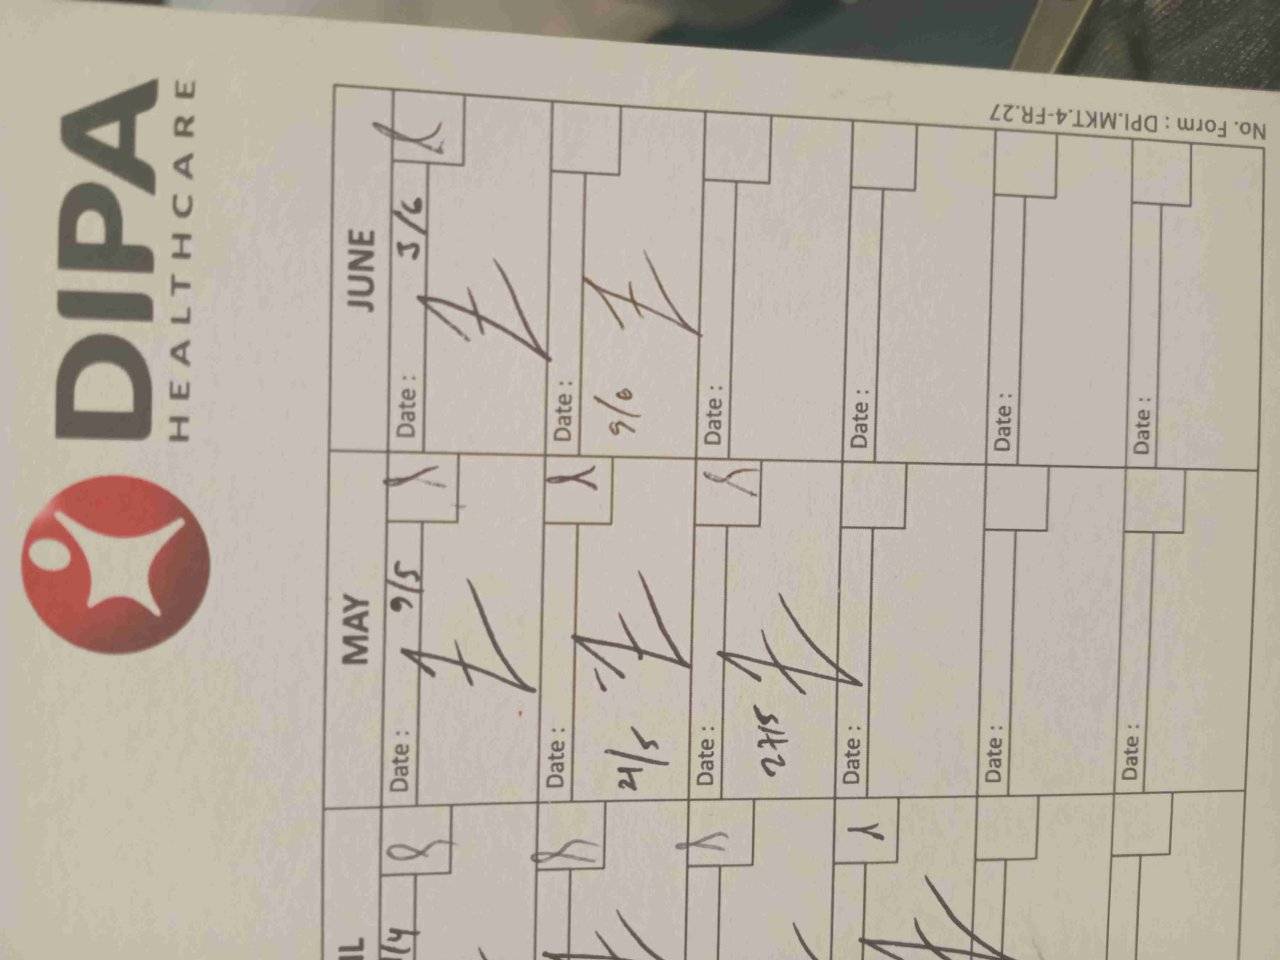 DIPA
HEALTHCARE
No. Form : DPI.MKT.4-FR.27
MAY
JUNE
Date : 9/5
Date : 3/6
Date :
21/5
Date :
9/6
Date :
27/5
Date :
Date :
Date :
Date :
Date :
Date :
Date :